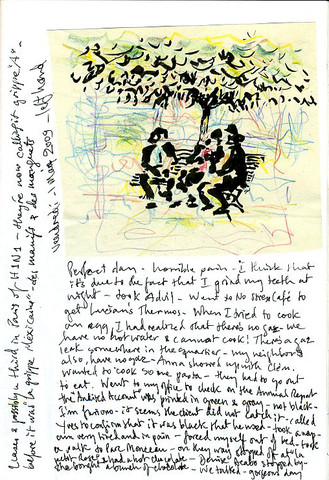 2 cases & possibly a third in Paris of H1N1 - they're now calling it grippe "A" -
before it was la grippe "Mexicaine" - des manifs & des
Vendredi 1 May 2009 - left hand
Perfect day - horrible pain - I think that
it's due to the fact that I grind my teeth at
night - took Advil - Went to No Stress Café to
get Lucian's Thermos - When I tried to cook
an egg, I had realized that there's no gaz - we
have no hot water & cannot cook! There's a gaz
leak somewhere in the quartier - my neighbors
also, have no gaz - Anna showed up with Clem.
wanted to cook some pasta - they had to go out
to eat. Went to my office to check on the Annual Report
the accent was printed in green & not black -
I'm furious - it seems the client did not catch it - called
Yves to confirm that it was black that he used - took a nap -
am very tired and in pain - forced myself out of bed - took
a walk to Parc Monceau - on the way stopped at a la
petite rose & had a hot chocolate - stopped by -
She bought a bunch of chocolate - We talked - gorgeous day